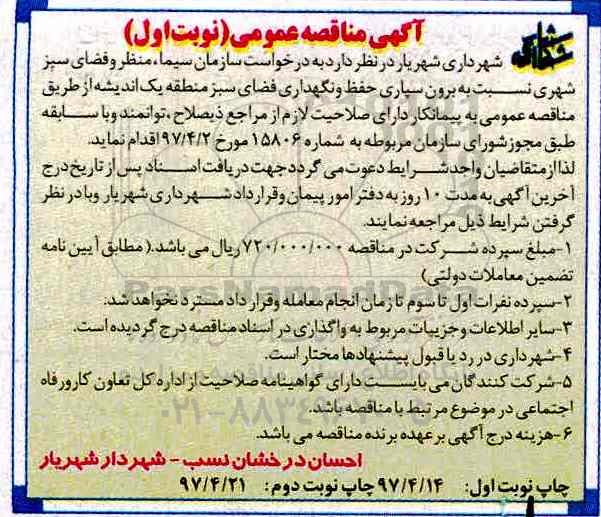 آگهی مناقصه عمومی (نوبت اول)
شهرداری شهریار در نظر دارد به درخواست سازمان سیما، منظر و فضای سبز
شهری نسبت به برون سپاری حفظ و نگهداری فضای سبز منطقه یک اندیشه از طریق
مناقصه عمومی به پیمانکار دارای صلاحیت لازم از مراجع ذیصلاح، توانمند و با سابقه
طبق مجوز شورای سازمان مربوطه به شماره ۱۵۸۰۶ مورخ ۹۷/۴/۲ اقدام نماید.
لذا از متقاضیان واجد شرایط دعوت می گردد جهت دریافت اسناد پس از تاریخ درج
آخرین آگهی به مدت ۱۰ روز به دفتر امور پیمان و قرارداد شهرداری شهریار و با در نظر
گرفتن شرایط ذیل مراجعه نمایند.
۱-مبلغ سپرده شرکت در مناقصه ۷۲۰/۰۰۰/۰۰۰ ریال می باشد.( مطابق آیین نامه
تضمین معاملات دولتی)
۲-سپرده نفرات اول تا سوم تا زمان انجام معامله و قرار داد مسترد نخواهد شد.
۳-سایر اطلاعات و جزییات مربوط به واگذاری در اسناد مناقصه درج گردیده است.
۴-شهرداری در رد یا قبول پیشنهادها مختار است.
۵-شرکت کنندگان می بایست دارای گواهینامه صلاحیت از اداره کل تعاون کار و رفاه
اجتماعی در موضوع مرتبط با مناقصه باشد.
۶-هزینه درج آگهی بر عهده برنده مناقصه می باشد.
احسان درخشان نسب - شهردار شهریار
چاپ نوبت اول: ۹۷/۴/۱۴ چاپ نوبت دوم: ۹۷/۴/۲۱
ParsNamadData